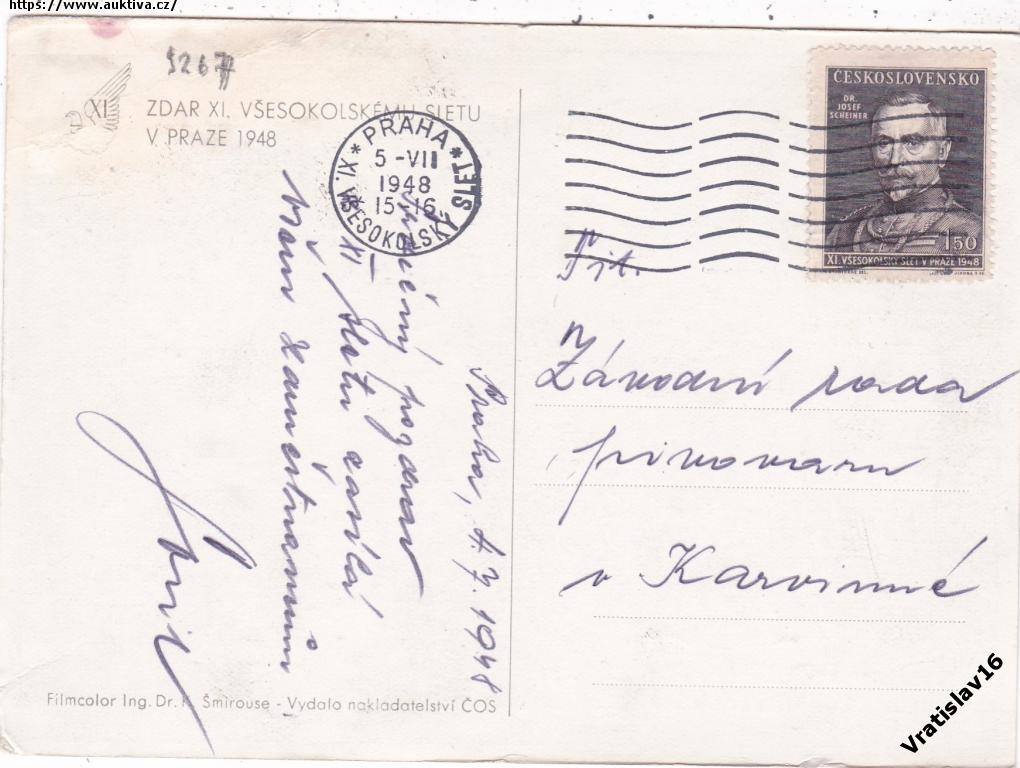 https://www.auktiva.cz/
9267
XI
ZDAR XI. VŠESOKOLSKÉMU SLETU
V PRAZE 1948
PRAHA
5-VII
1948
15-16
XI. VŠESOKOLSKÝ SLET
ČESKOSLOVENSKO
DR.
JOSEF
SCHEINER
1·50
XI. VŠESOKOLSKÝ SLET V PRAZE 1948
Praha, 4.7.1948
pozdrav
z XI. sletu zasílá
Všem zaměstnancům
Tjt.
Závodní rada
pivovaru
v Karvinné
Filmcolor Ing. Dr. K. Šmirouse - Vydalo nakladatelství ČOS
Vratislav16